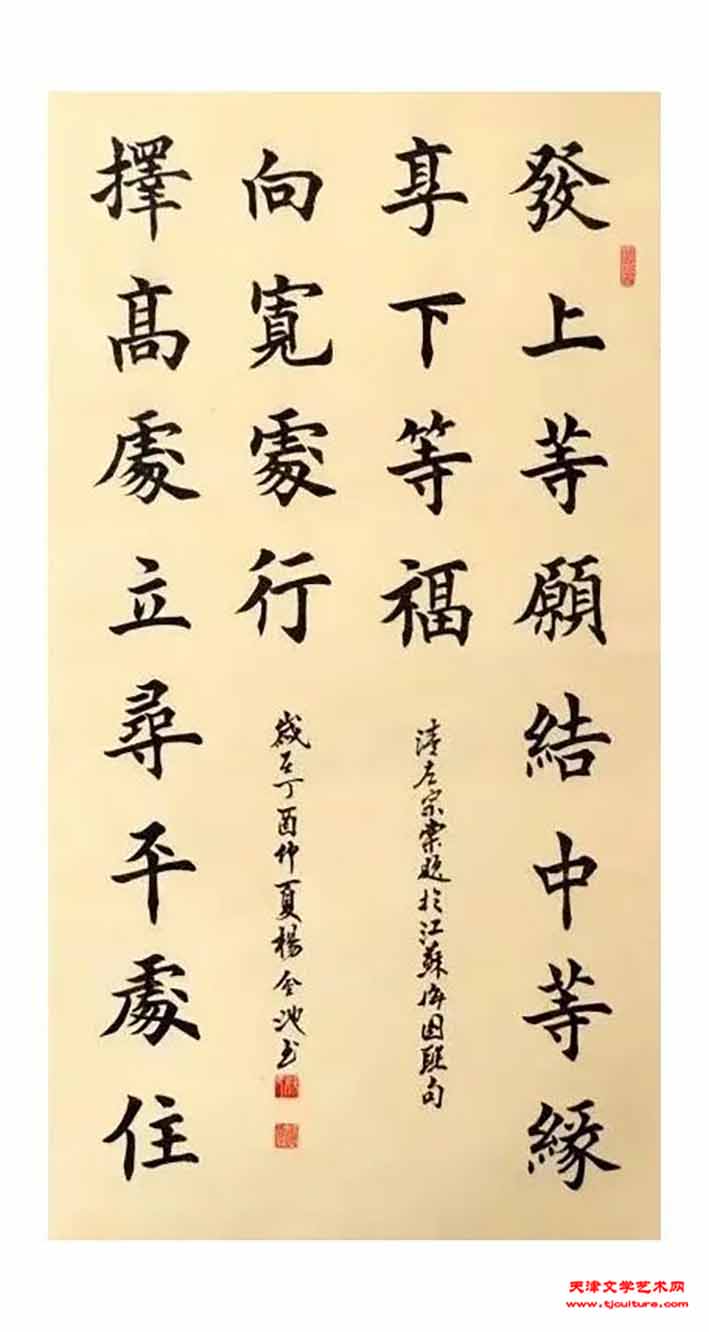 發上等願結中等緣
享下等福
清左宗棠題於江蘇梅園聯句
擇高處立尋平處住
向寬處行
歲在丁酉仲夏楊金池书
天津文学艺术网
www.tjculture.com